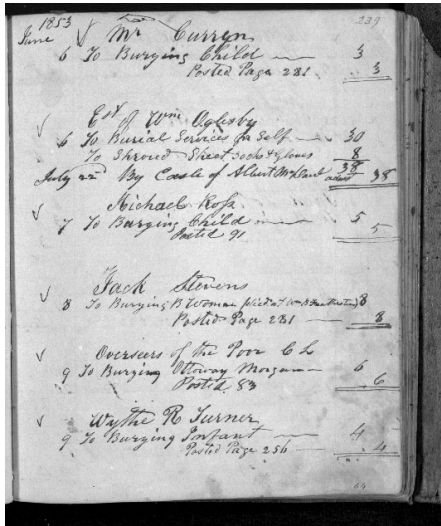 239
1853
June √ Mr Curryn
6 To Burying Child — 3
Posted Page 281 .. 3
√ Est of Wm Oglesby
6 To Burial Services for Self — 30
To Shroud Sheet Socks & Gloves 8
38
July 22d By Cash of Albert admr 38
√ Michael Ross
7 To Burying Child 5
Posted 91 5
√ Jack Stevens
8 To Burying B Woman 8
Posted Page 281 — 8
√ Overseers of the Poor C L
9 To Burying Ottoway Morgan — 6
Posted 83 6
√ Wythe R Turner
9 To Burying Infant — 4
Posted Page 256 — 4